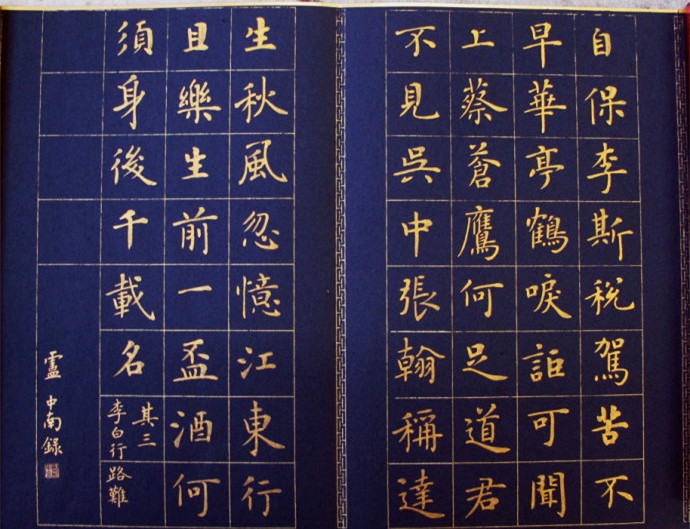 自保李斯稅駕苦不
早華亭鶴唳詎可聞
上蔡蒼鷹何足道君
不見吳中張翰稱達
生秋風忽憶江東行
且樂生前一盃酒何
須身後千載名
其三
李白行路難
盧中南錄